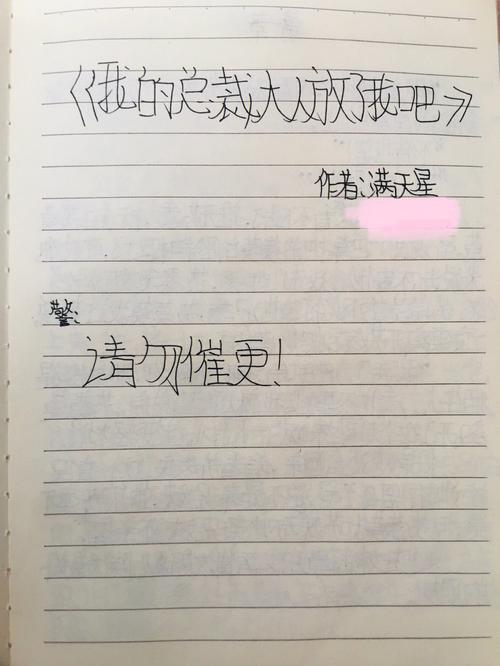 《我的总裁大人放了我吧》
作者:满天星
警:
请勿催更!